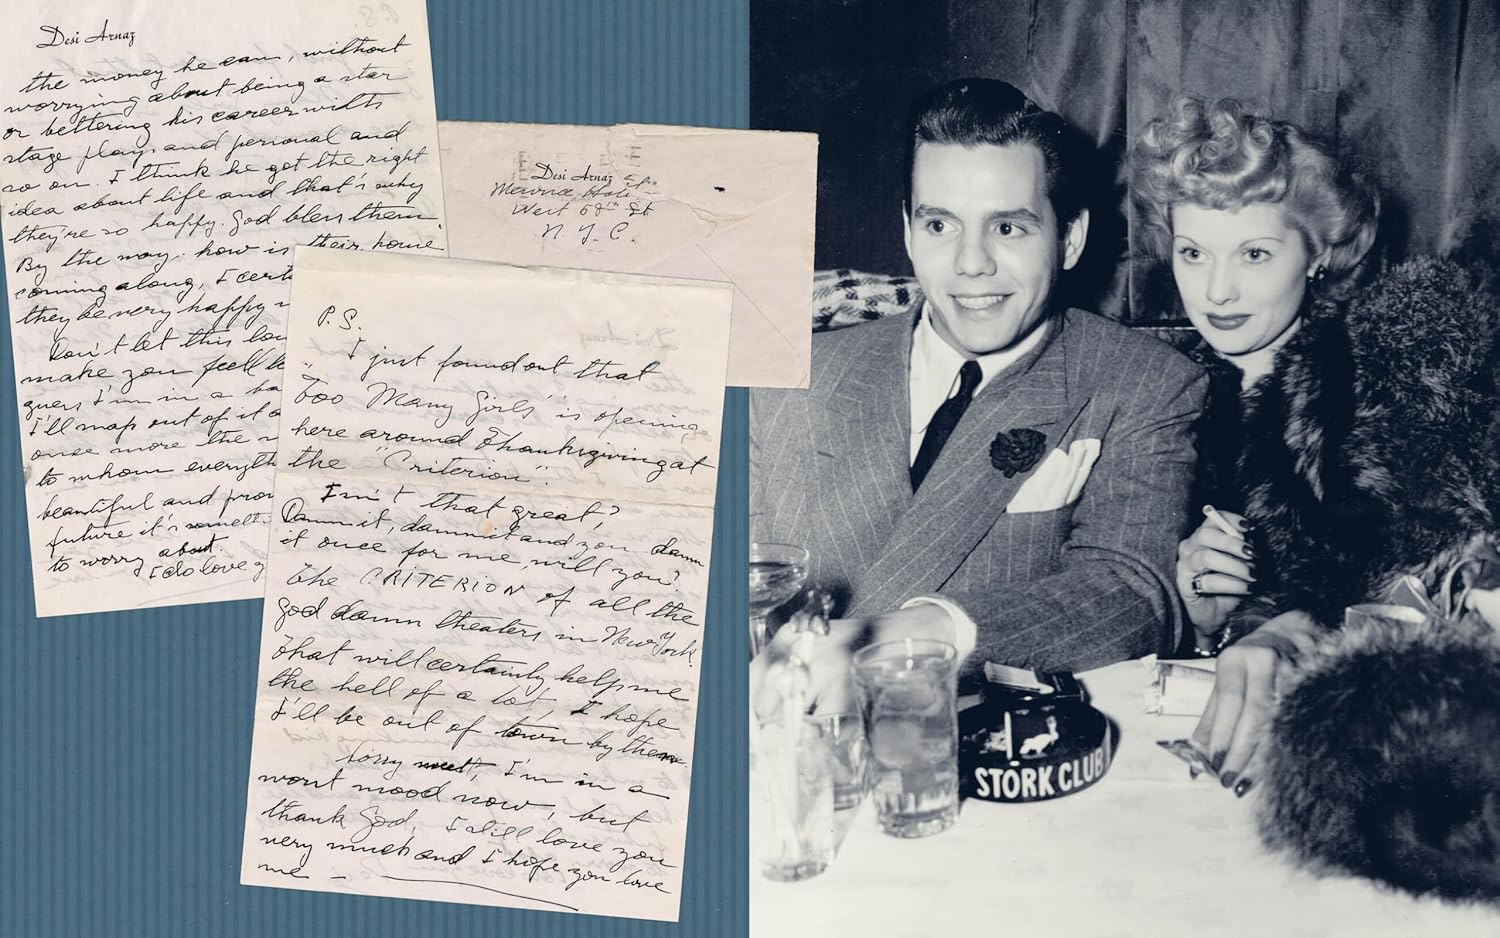 Desi Arnaz
the money he earns, without
worrying about being a star
or bettering his career with
stage plays and personal and
so on. I think he got the right
idea about life and that's why
they're so happy. God bless them
By the way: how is their home
coming along, I cert
they be very happy
Don't let this
make you feel
guess I'm in a
I'll map out of it
once more the
to whom everyth
beautiful and
future it's
to worry about.
I do love
Desi Arnaz
West 58th St
N.Y.C.
P.S.
I just found out that
"Too Many Girls" is opening
here around Thanksgiving at
the "Criterion".
Isn't that great?
Damn it, dammit and you damn
it once for me, will you?
The CRITERION of all the
god damn theaters in New York.
That will certainly help me
the hell of a lot, I hope
I'll be out of town by then.
Sorry sweet, I'm in a
worst mood now, but
thank God, I still love you
very much and I hope you love
me –
STORK CLUB